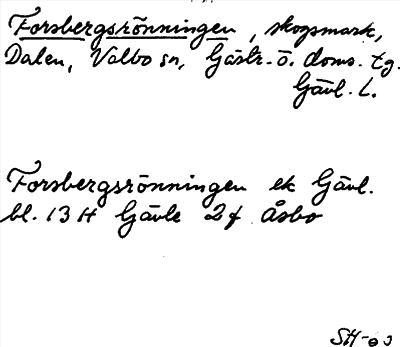 Forsbergsrönningen, skogsmark,
Dalen, Valbo sn, Gästr. ö. doms. tg.
Gävl. L.
Forsbergsrönningen ek Gävl.
bl. 13 H Gävle 2 f Åsbo